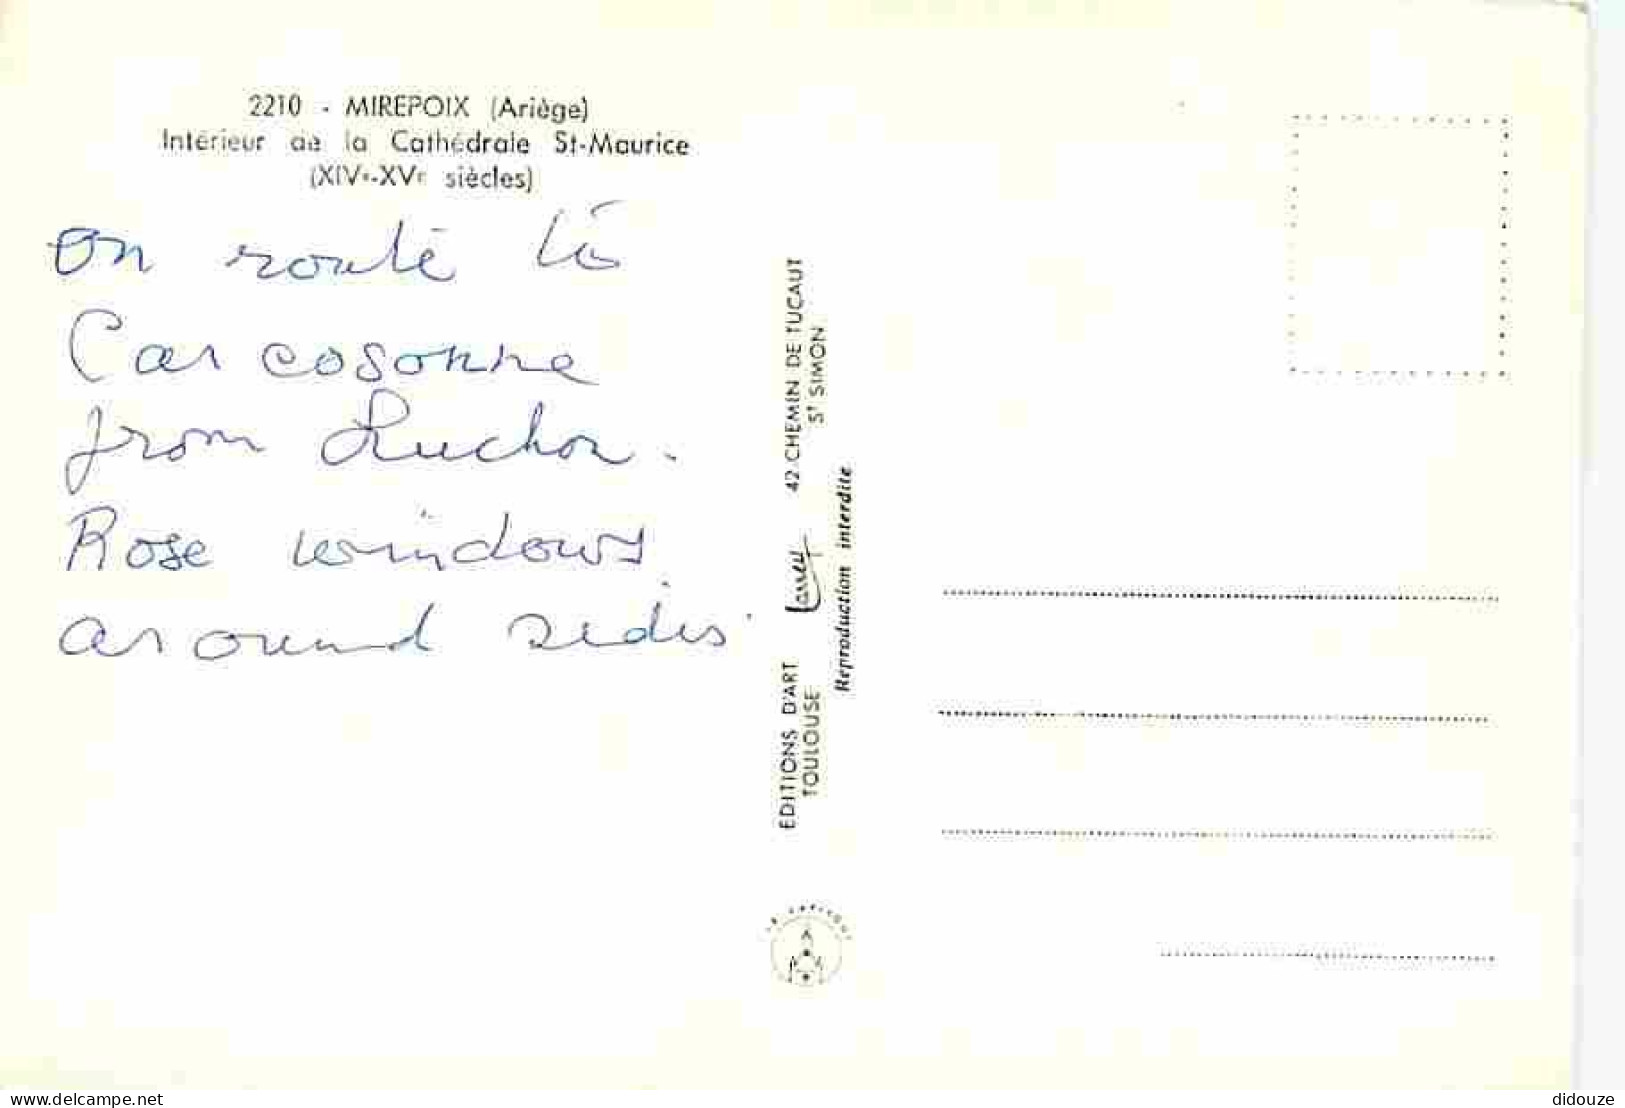 2210 - MIREPOIX (Ariège)
Intérieur de la Cathédrale St-Maurice
(XIVe-XVe siècles)
On route to
Carcosonne
from Luchon.
Rose windows
around sides
EDITIONS D'ART Larrey 42 CHEMIN DE TUCAUT
TOULOUSE St SIMON
Reproduction interdite
www.delcampe.net
didouze